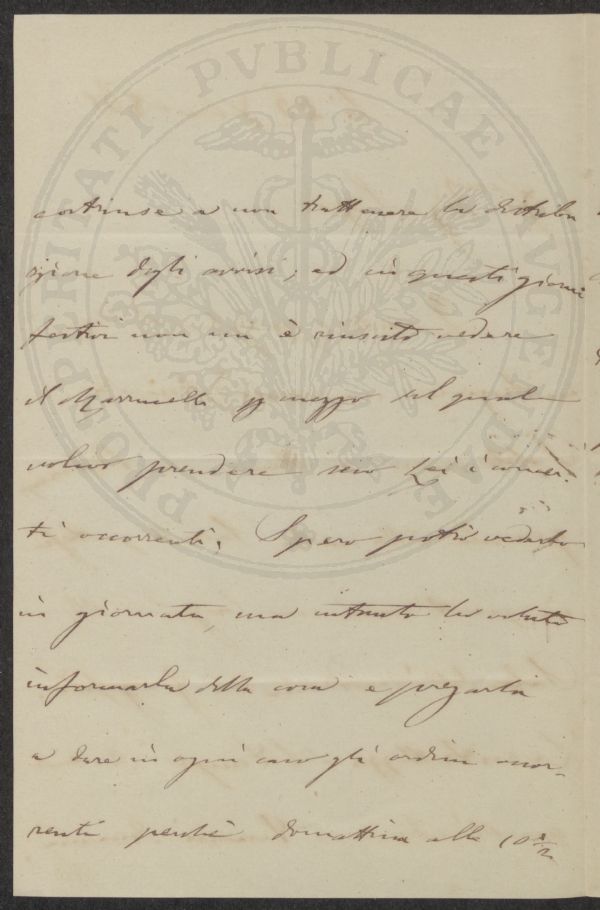 PROSPERITATI PVBLICAE AVGENDAE
costrinse a non trattenere la distribu
zione degli avvisi; ed in questi giorni
festivi non mi è riuscito vedere
il Marrucelli pr mezzo del quale
volevo prendere seco Lei i concer-
ti occorrenti. Spero potrò vederlo
in giornata, ma intanto ho voluto
informarla della cosa e pregarla
a dare in ogni caso gli ordini occor-
renti perchè domattina alle 10 ½